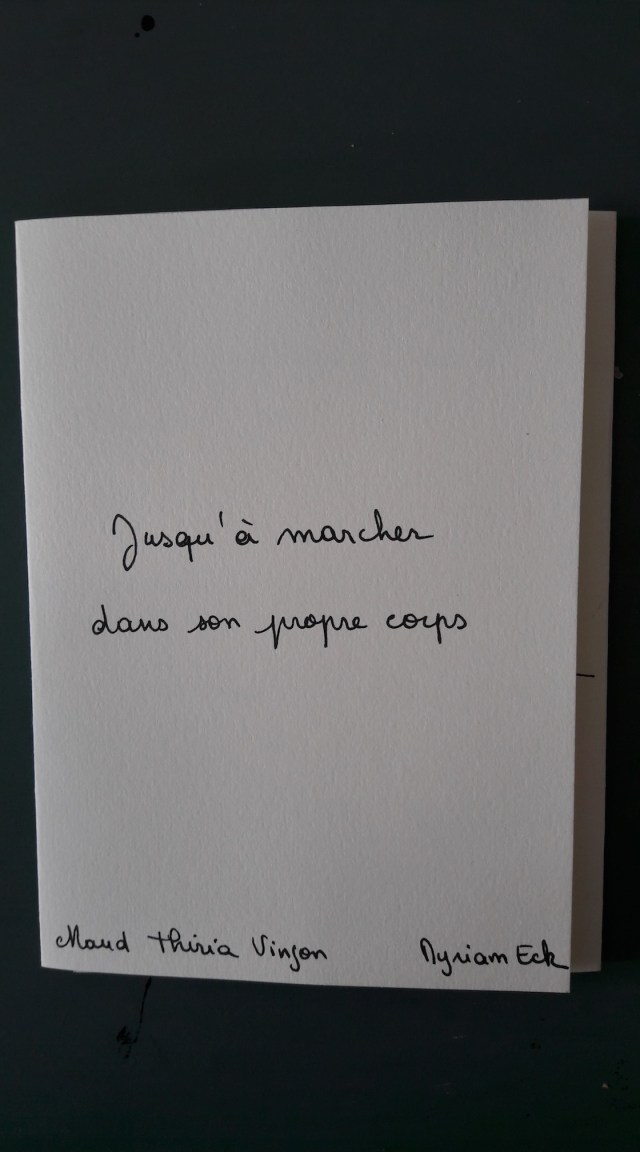 Jusqu'à marcher
dans son propre corps
Maud Thiria Vinçon Myriam Eck